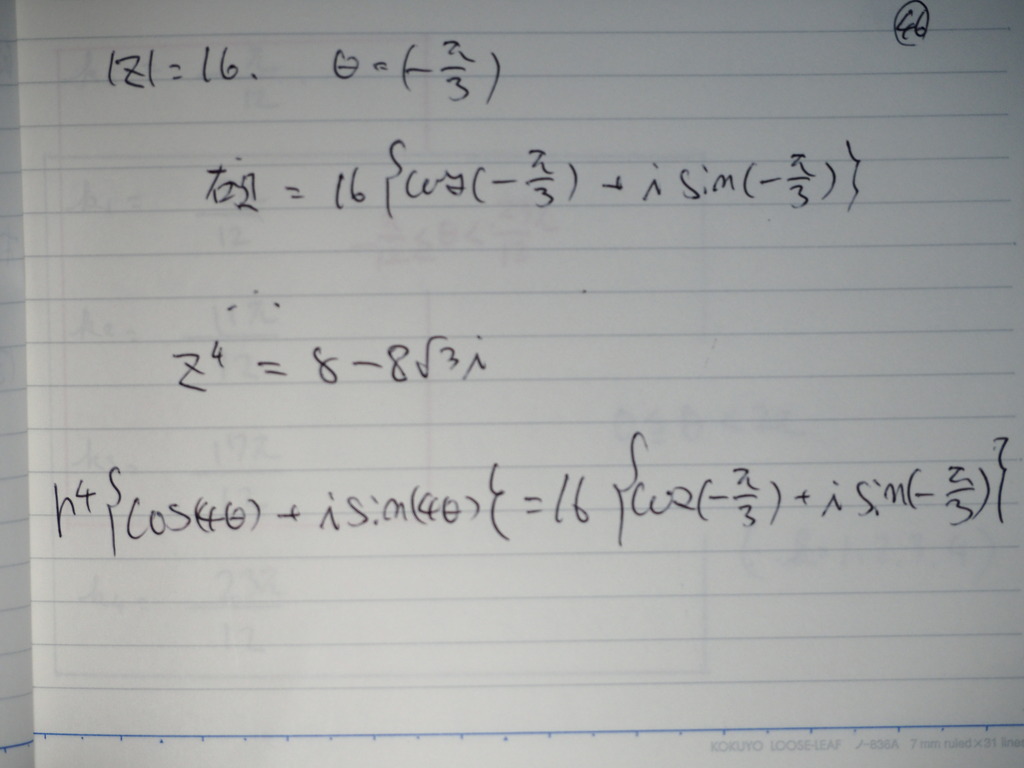 46
|z| = 16. θ = (-π/3)
右辺 = 16{cos(-π/3) + i sin(-π/3)}
∴
z⁴ = 8 - 8√3i
r⁴{cos(4θ) + i sin(4θ)} = 16{cos(-π/3) + i sin(-π/3)}
KOKUYO LOOSE-LEAF ノ-836A 7 mm ruled×31 lines